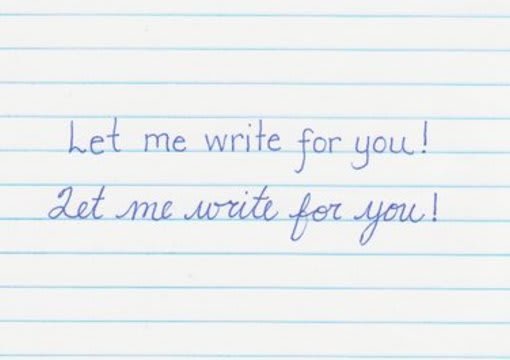 Let me write for you!
Let me write for you!